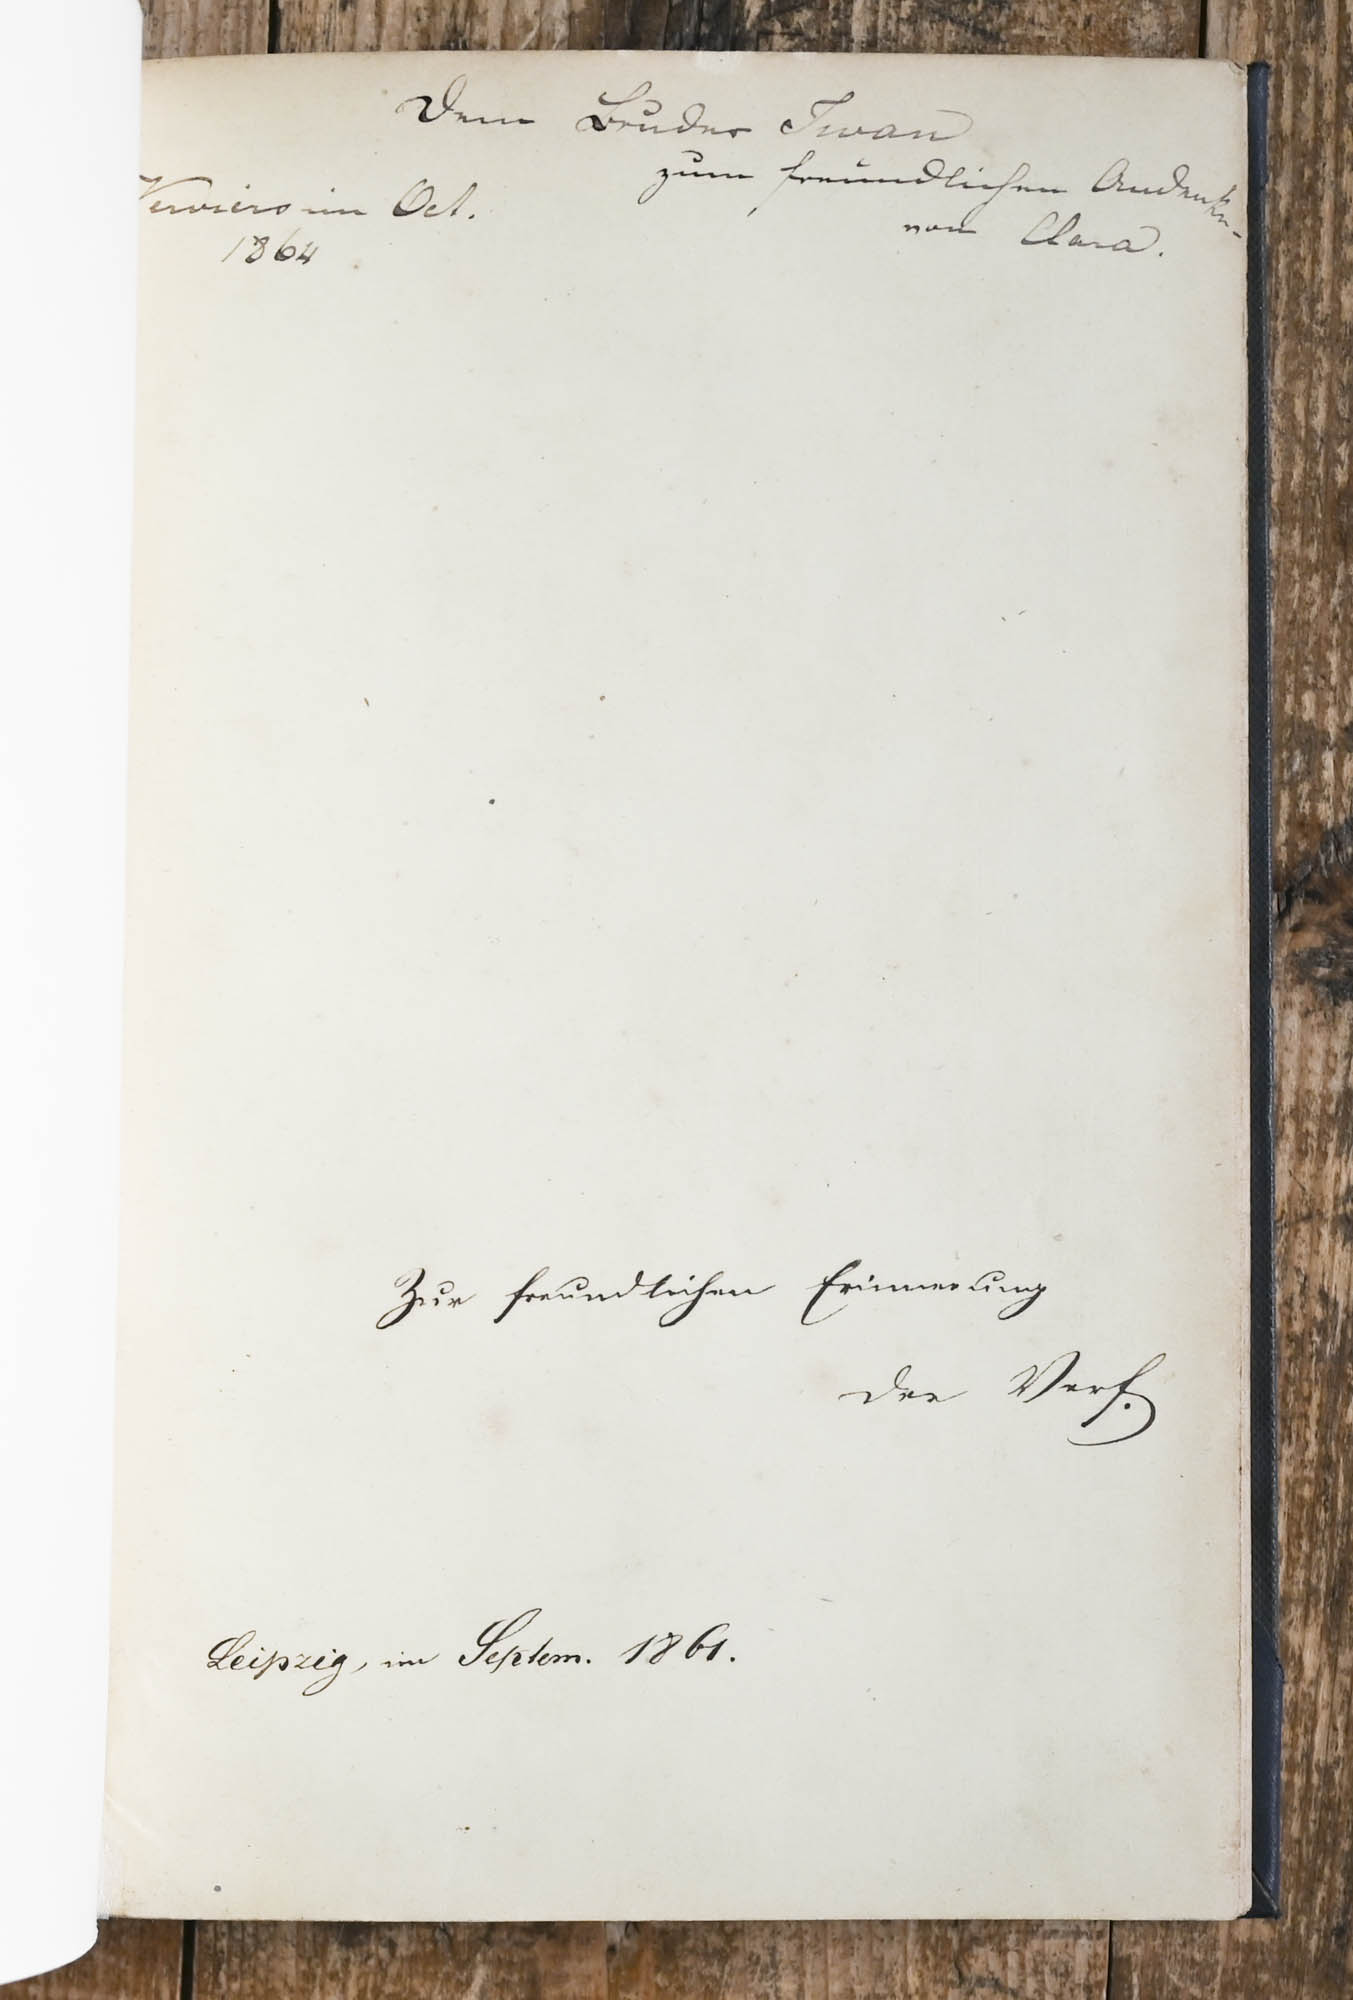 Dem Bruder Iwan
zum freundlichen Andenken
von Clara.
Verviers im Oct.
1864
Zur freundlichen Erinnerung
der Verf.
Leipzig, im Septem. 1861.